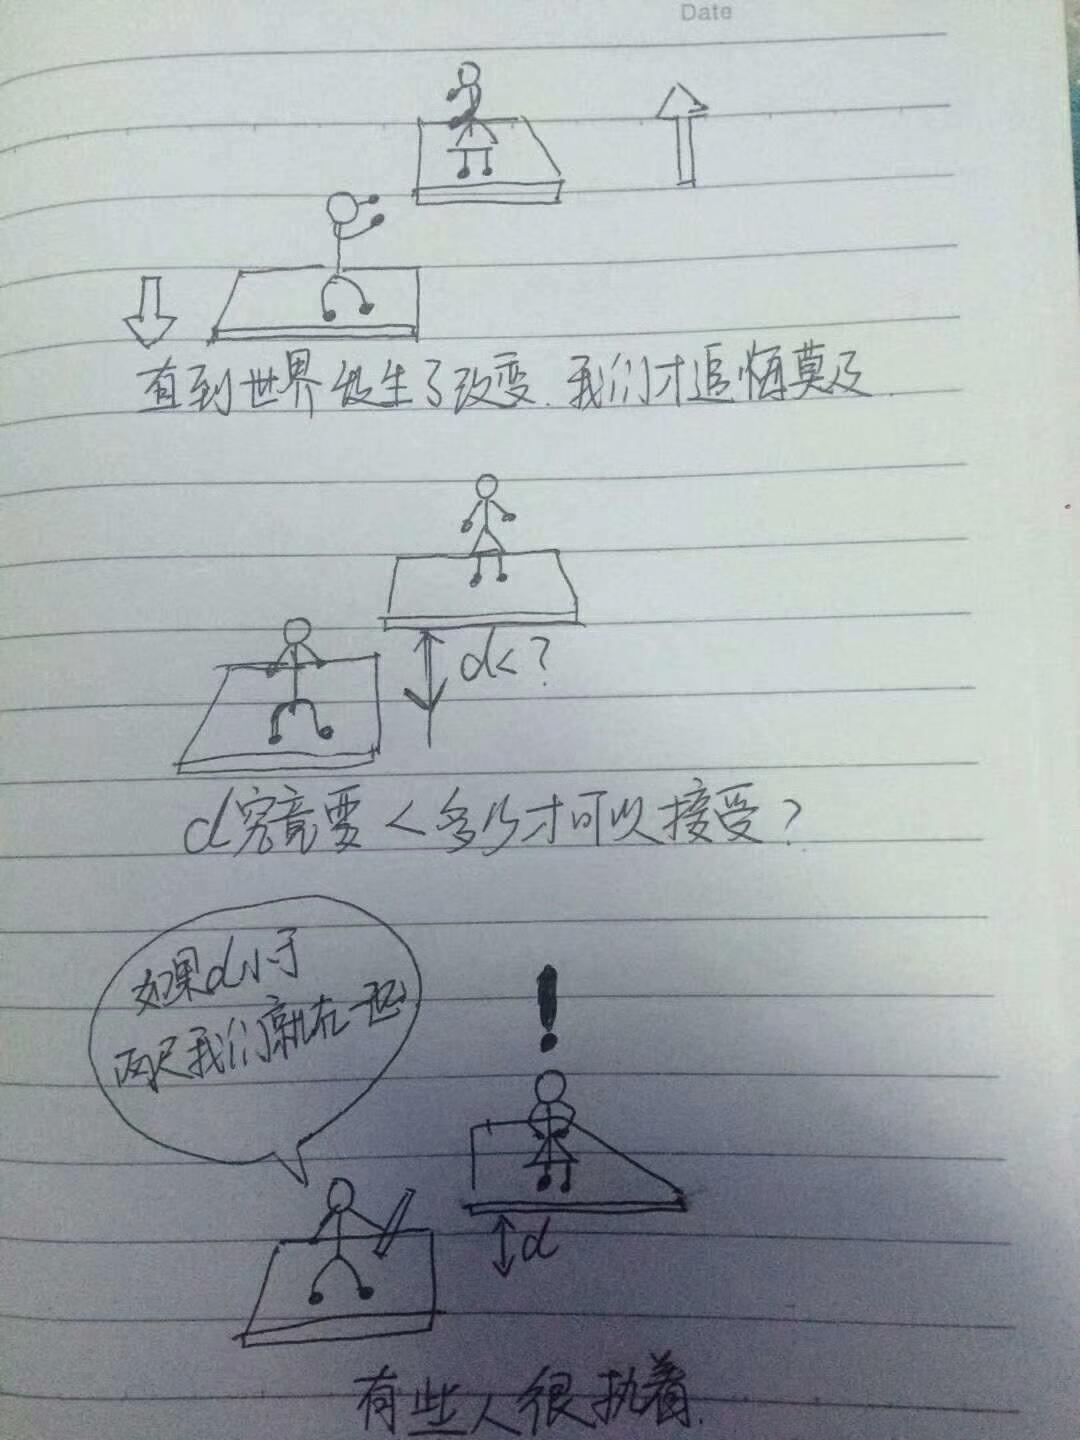 Date
直到世界发生了改变.我们才追悔莫及.
d<?
d究竟要<多少才可以接受?
如果d小于
两尺我们就在一起
!
d
有些人很执着.